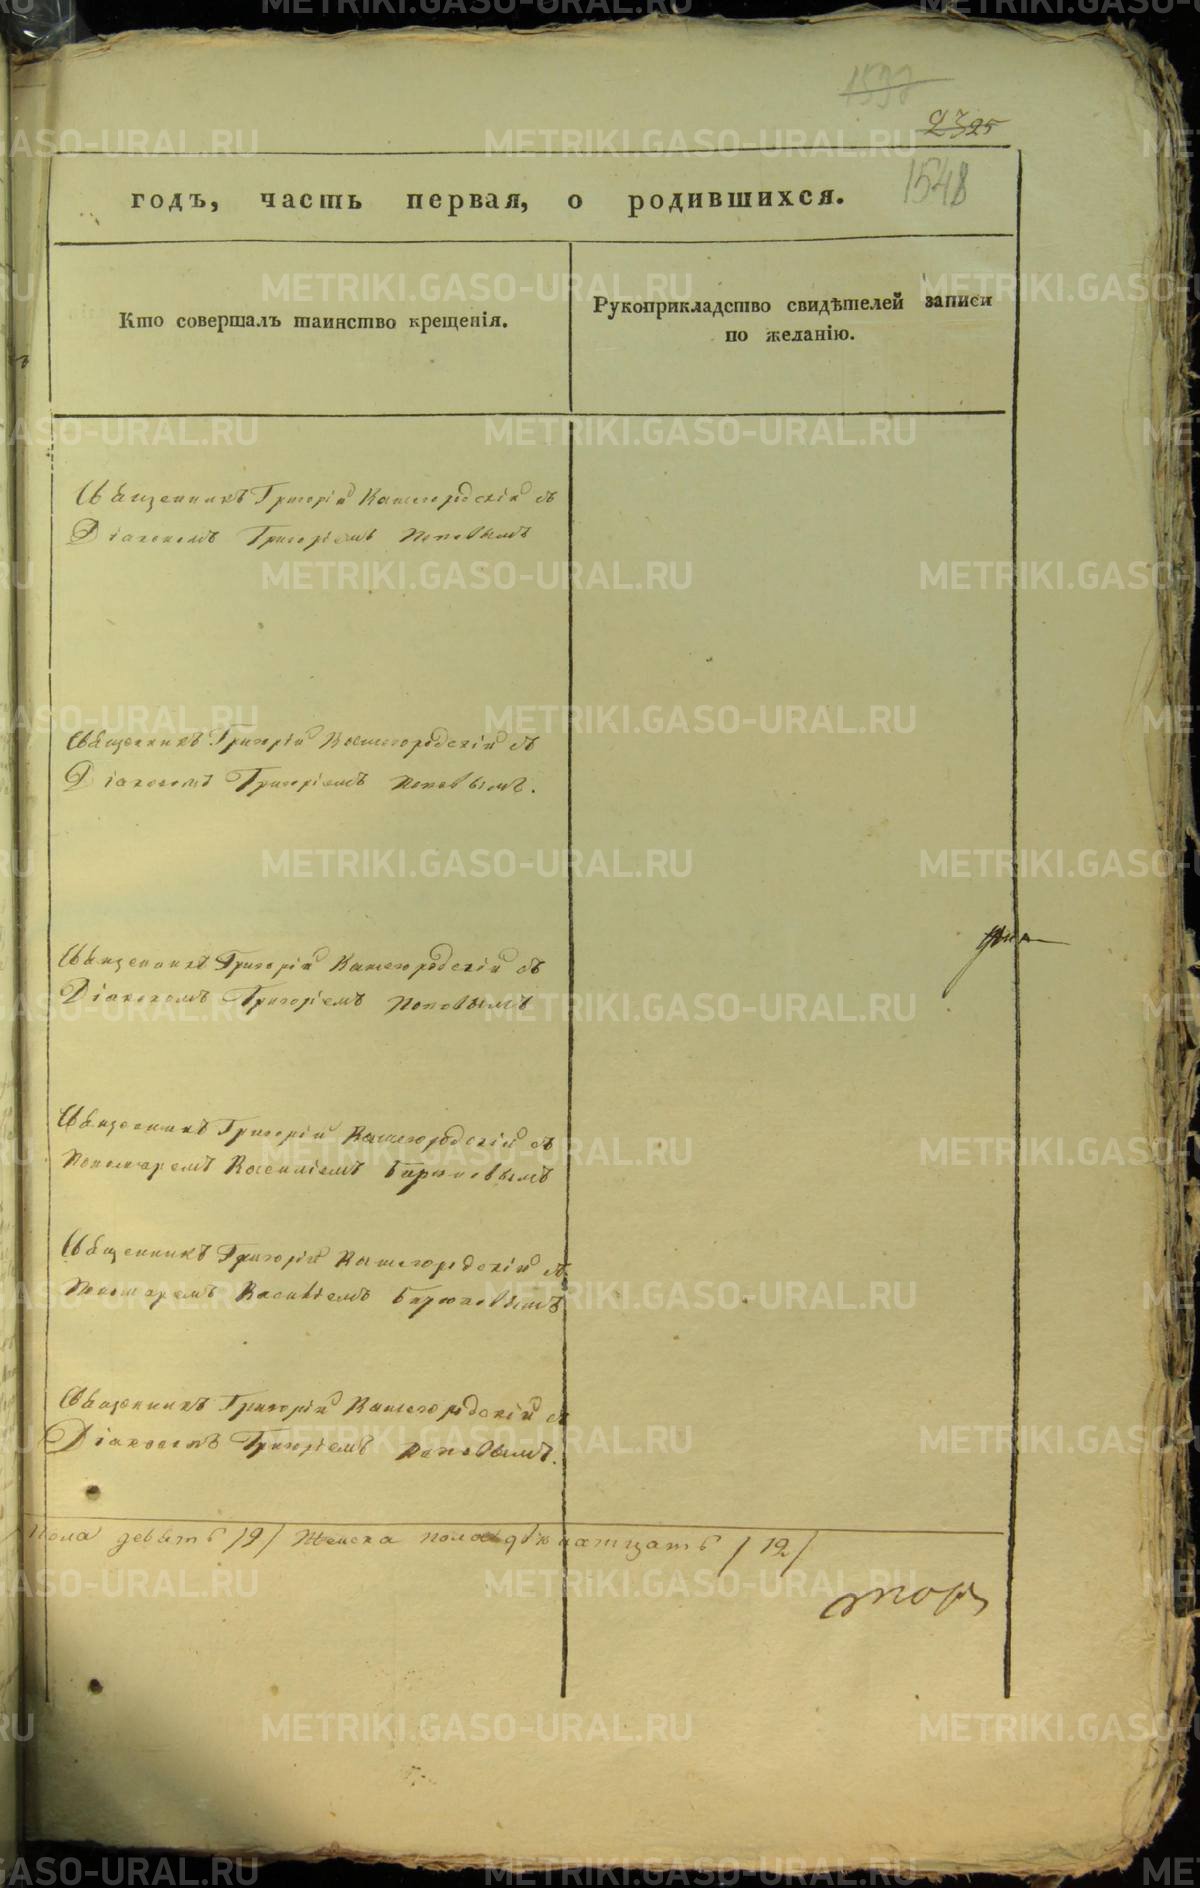 1597
2325
1548
годъ, часть первая, о родившихся.
Кто совершалъ таинство крещенія.
Рукоприкладство свидѣтелей записи
по желанію.
Священникъ Григорій Кашегородскій съ
Діакономъ Григоріемъ Поповымъ
Священникъ Григорій Кашегородскій съ
Діакономъ Григоріемъ Поповымъ.
Священникъ Григорій Кашегородскій съ
Діакономъ Григоріемъ Поповымъ
Священникъ Григорій Кашегородскій съ
Пономаремъ Василіемъ Бирюковымъ
Священникъ Григорій Кашегородскій съ
Пономаремъ Василіемъ Бирюковымъ
Священникъ Григорій Кашегородскій съ
Діакономъ Григоріемъ Поповымъ.
Пола девять /9/ Женска пола двѣнатцать /12/
METRIKI.GASO-URAL.RU